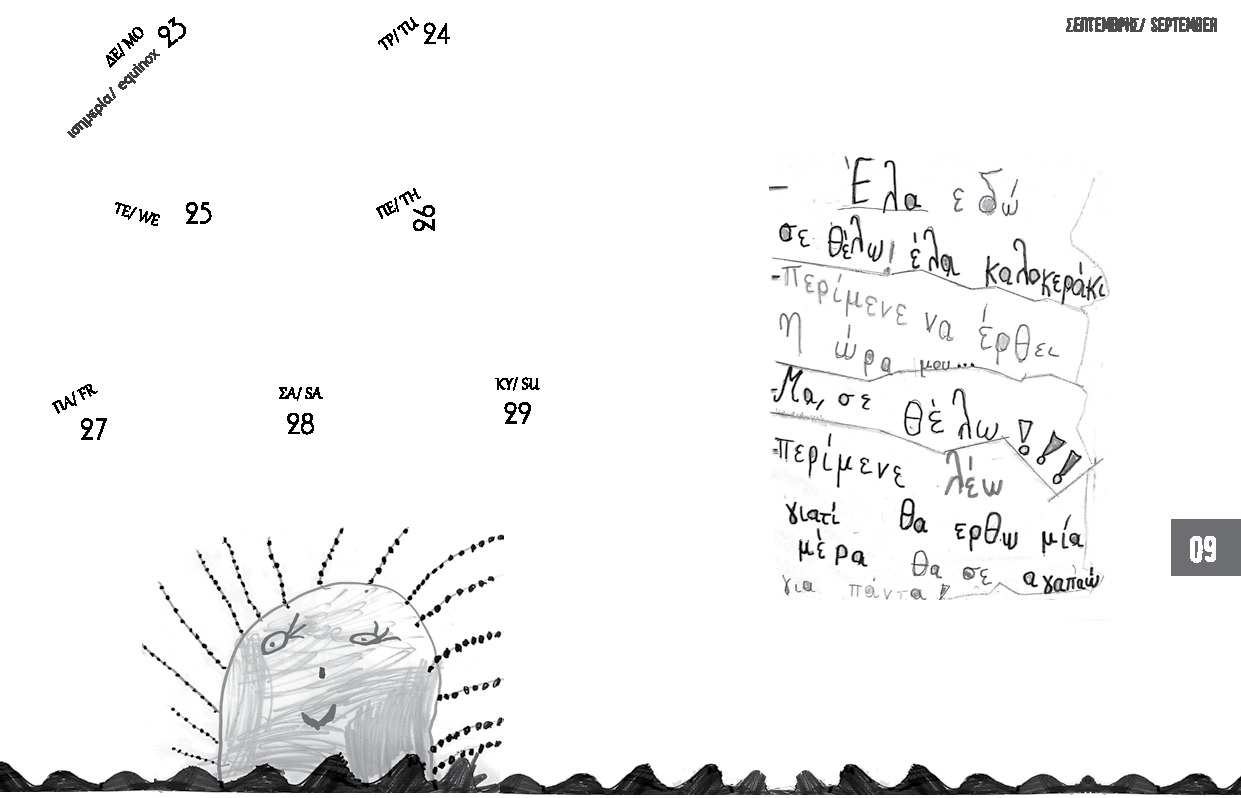 ΔΕ/ MO 23
ισημερία/ equinox
ΤΡ/ TU 24
ΣΕΠΤΕΜΒΡΗΣ/ SEPTEMBER
ΤΕ/ WE 25
ΠΕ/ TH 26
ΠΑ/ FR 27
ΣΑ/ SA 28
ΚΥ/ SU 29
- Έλα εδώ
σε θέλω! έλα καλοκεράκι
-Περίμενε να έρθει
η ώρα μου...
-Μα, σε θέλω!!!
-περίμενε λέω
γιατί θα ερθω μία
μέρα θα σε αγαπαώ
για πάντα!
09